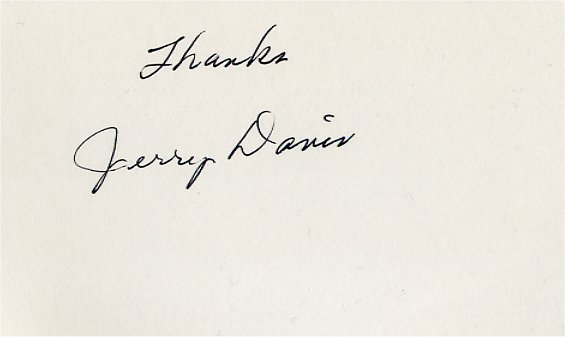 Thanks
Jerry Davis